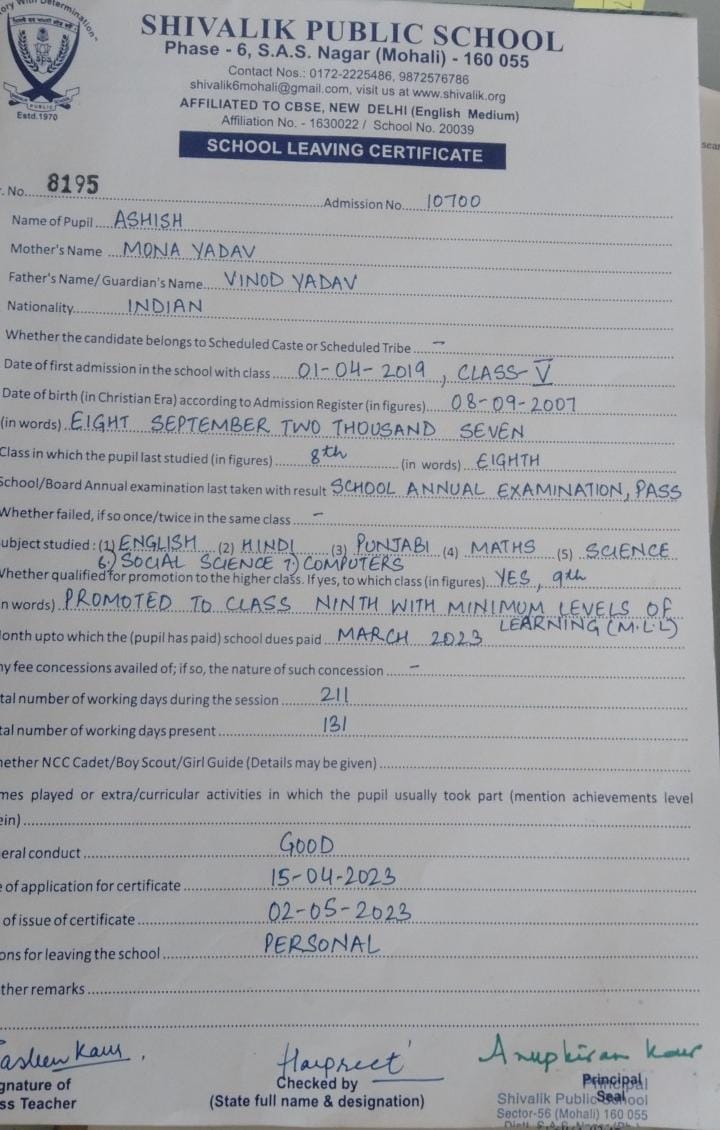 ory With Determination
SHIVALIK PUBLIC SCHOOL
Phase - 6, S.A.S. Nagar (Mohali) - 160 055
Contact Nos.: 0172-2225486, 9872576786
shivalik6mohali@gmail.com, visit us at www.shivalik.org
AFFILIATED TO CBSE, NEW DELHI (English Medium)
Affiliation No. - 1630022 / School No. 20039
PUBLIC
Estd.1970
SCHOOL LEAVING CERTIFICATE
. No. 8195 Admission No. 10700
Name of Pupil ASHISH
Mother's Name MONA YADAV
Father's Name/ Guardian's Name VINOD YADAV
Nationality INDIAN
Whether the candidate belongs to Scheduled Caste or Scheduled Tribe -
Date of first admission in the school with class 01-04-2019, CLASS-V
Date of birth (in Christian Era) according to Admission Register (in figures) 08-09-2007
(in words) EIGHT SEPTEMBER TWO THOUSAND SEVEN
Class in which the pupil last studied (in figures) 8th (in words) EIGHTH
School/Board Annual examination last taken with result SCHOOL ANNUAL EXAMINATION, PASS
Whether failed, if so once/twice in the same class -
ubject studied : (1) ENGLISH (2) HINDI (3) PUNJABI (4) MATHS (5) SCIENCE
6) SOCIAL SCIENCE 7) COMPUTERS
Whether qualified for promotion to the higher class. If yes, to which class (in figures) YES, 9th
n words) PROMOTED TO CLASS NINTH WITH MINIMUM LEVELS OF
LEARNING (M.L.L)
onth upto which the (pupil has paid) school dues paid MARCH 2023
ny fee concessions availed of; if so, the nature of such concession -
tal number of working days during the session 211
tal number of working days present 131
hether NCC Cadet/Boy Scout/Girl Guide (Details may be given)
mes played or extra/curricular activities in which the pupil usually took part (mention achievements level
ein)
eral conduct GOOD
e of application for certificate 15-04-2023
of issue of certificate 02-05-2023
ons for leaving the school PERSONAL
ther remarks
Kaur Harpreet Anupkiran Kaur
gnature of Checked by Principal
ss Teacher (State full name & designation) Seal
Principal
Shivalik Public School
Sector-56 (Mohali) 160 055